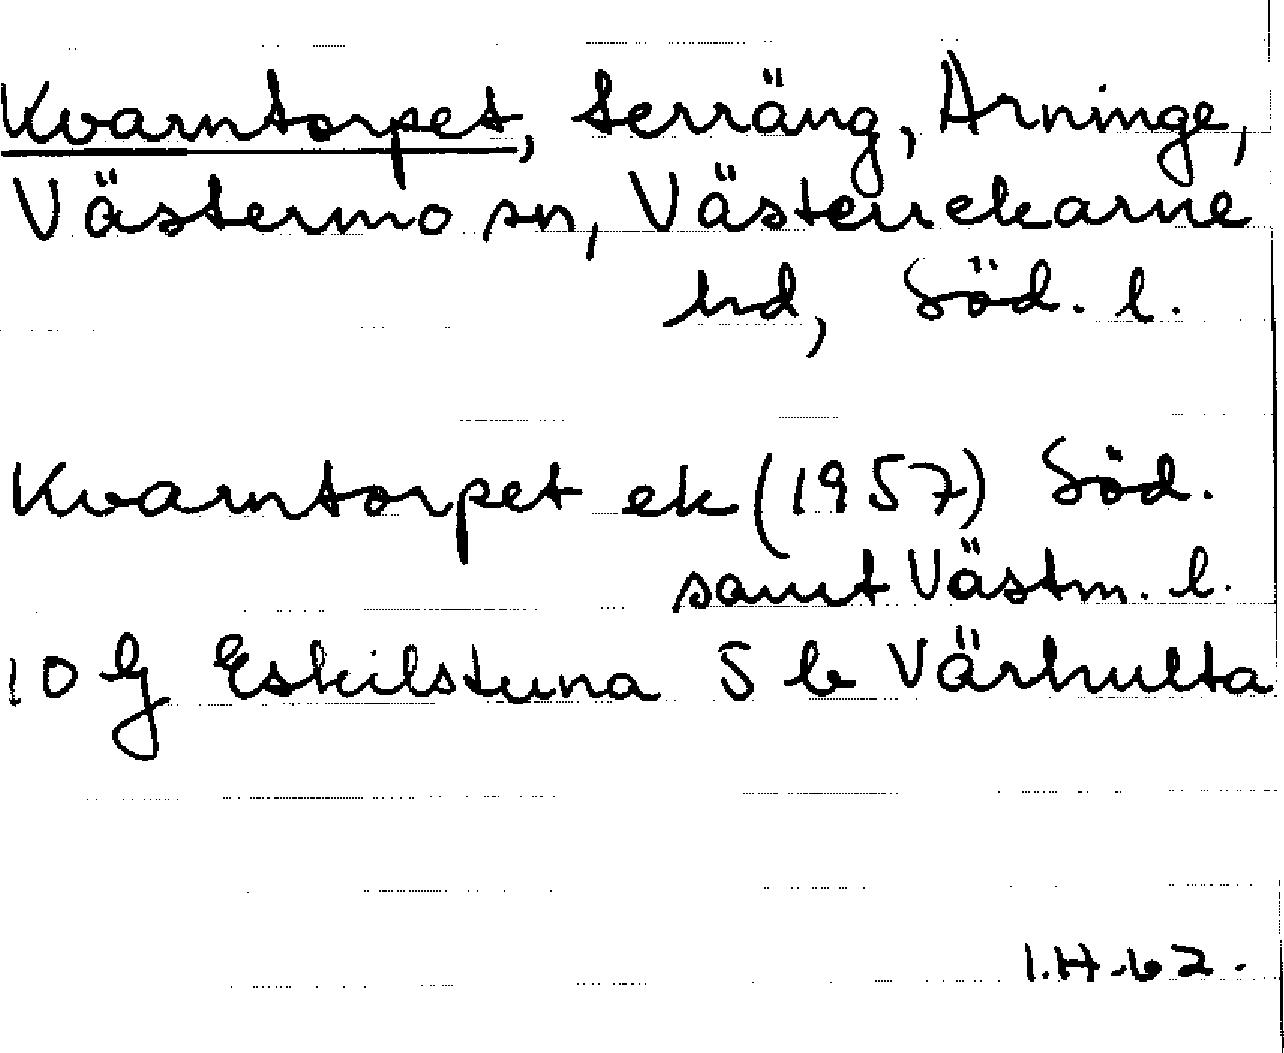 Kvarntorpet, terräng, Arninge,
Västermo sn, Västerrekarne
hd, Söd. l.
Kvarntorpet ek (1957) Söd.
samt Västm. l.
10 G Eskilstuna S b Värhulta
I.H.62.